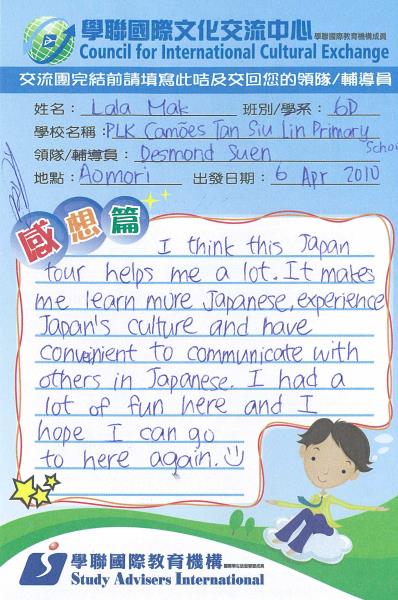 學聯國際文化交流中心 學聯國際教育機構成員
Council for International Cultural Exchange
交流團完結前請填寫此咭及交回您的領隊/輔導員
姓名： Lala Mak 班別/學系： 6D
學校名稱：PLK Camões Tan Siu Lin Primary School
領隊/輔導員： Desmond Suen
地點： Aomori 出發日期： 6 Apr 2010
感想篇
I think this Japan
tour helps me a lot. It makes
me learn more Japanese, experience
Japan's culture and have
convinient to communicate with
others in Japanese. I had a
lot of fun here and I
hope I can go
to here again.
學聯國際教育機構
Study Advisers International